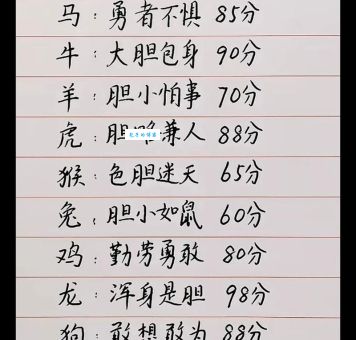 马：勇者不惧 85分
牛：大胆包身 90分
羊：胆小怕事 70分
虎：胆 兼人 88分
猴：色胆迷天 65分
兔：胆小如鼠 60分
鸡：勤劳勇敢 80分
龙：浑身是胆 98分
狗：敢想敢为 88分